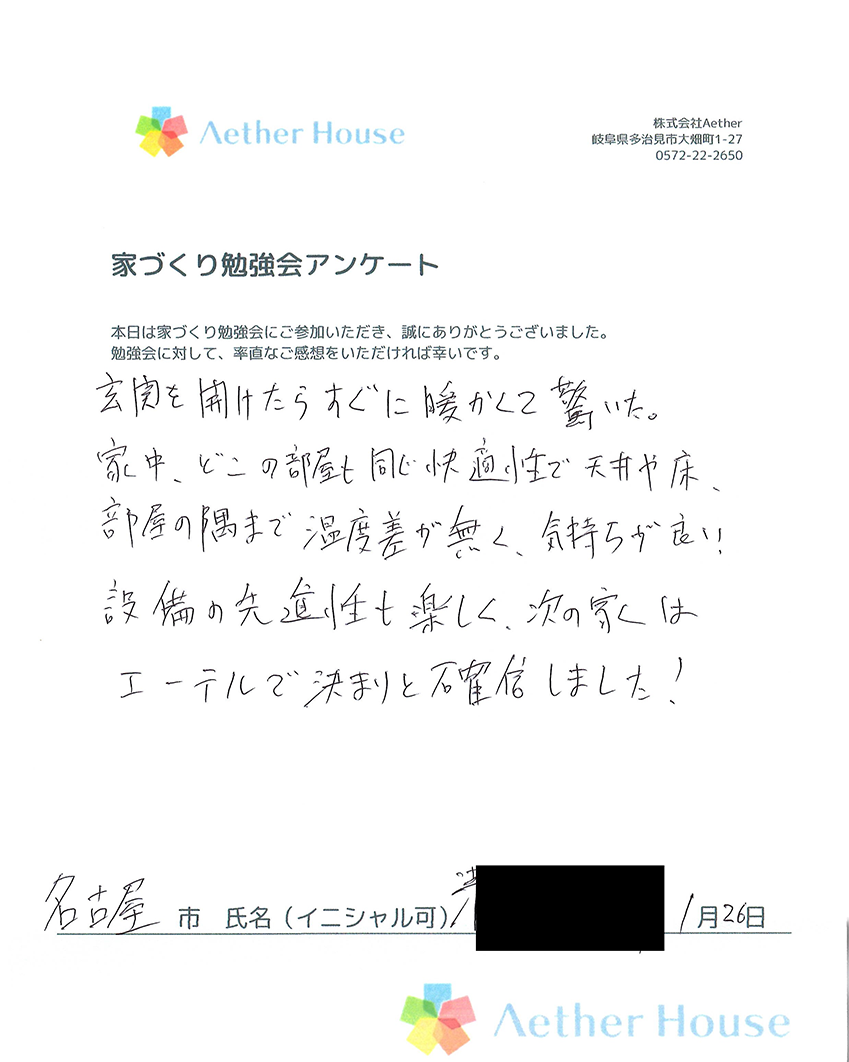 Aether House
株式会社Aether
岐阜県多治見市大畑町1-27
0572-22-2650
家づくり勉強会アンケート
本日は家づくり勉強会にご参加いただき、誠にありがとうございました。
勉強会に対して、率直なご感想をいただければ幸いです。
玄関を開けたらすぐに暖かくて驚いた。
家中、どこの部屋も同じ快適性で天井や床、
部屋の隅まで温度差が無く、気持ちが良い!
設備の先進性も楽しく、次の家くは
エーテルで決まりと確信しました!
名古屋 市 氏名(イニシャル可) 1月26日
Aether House